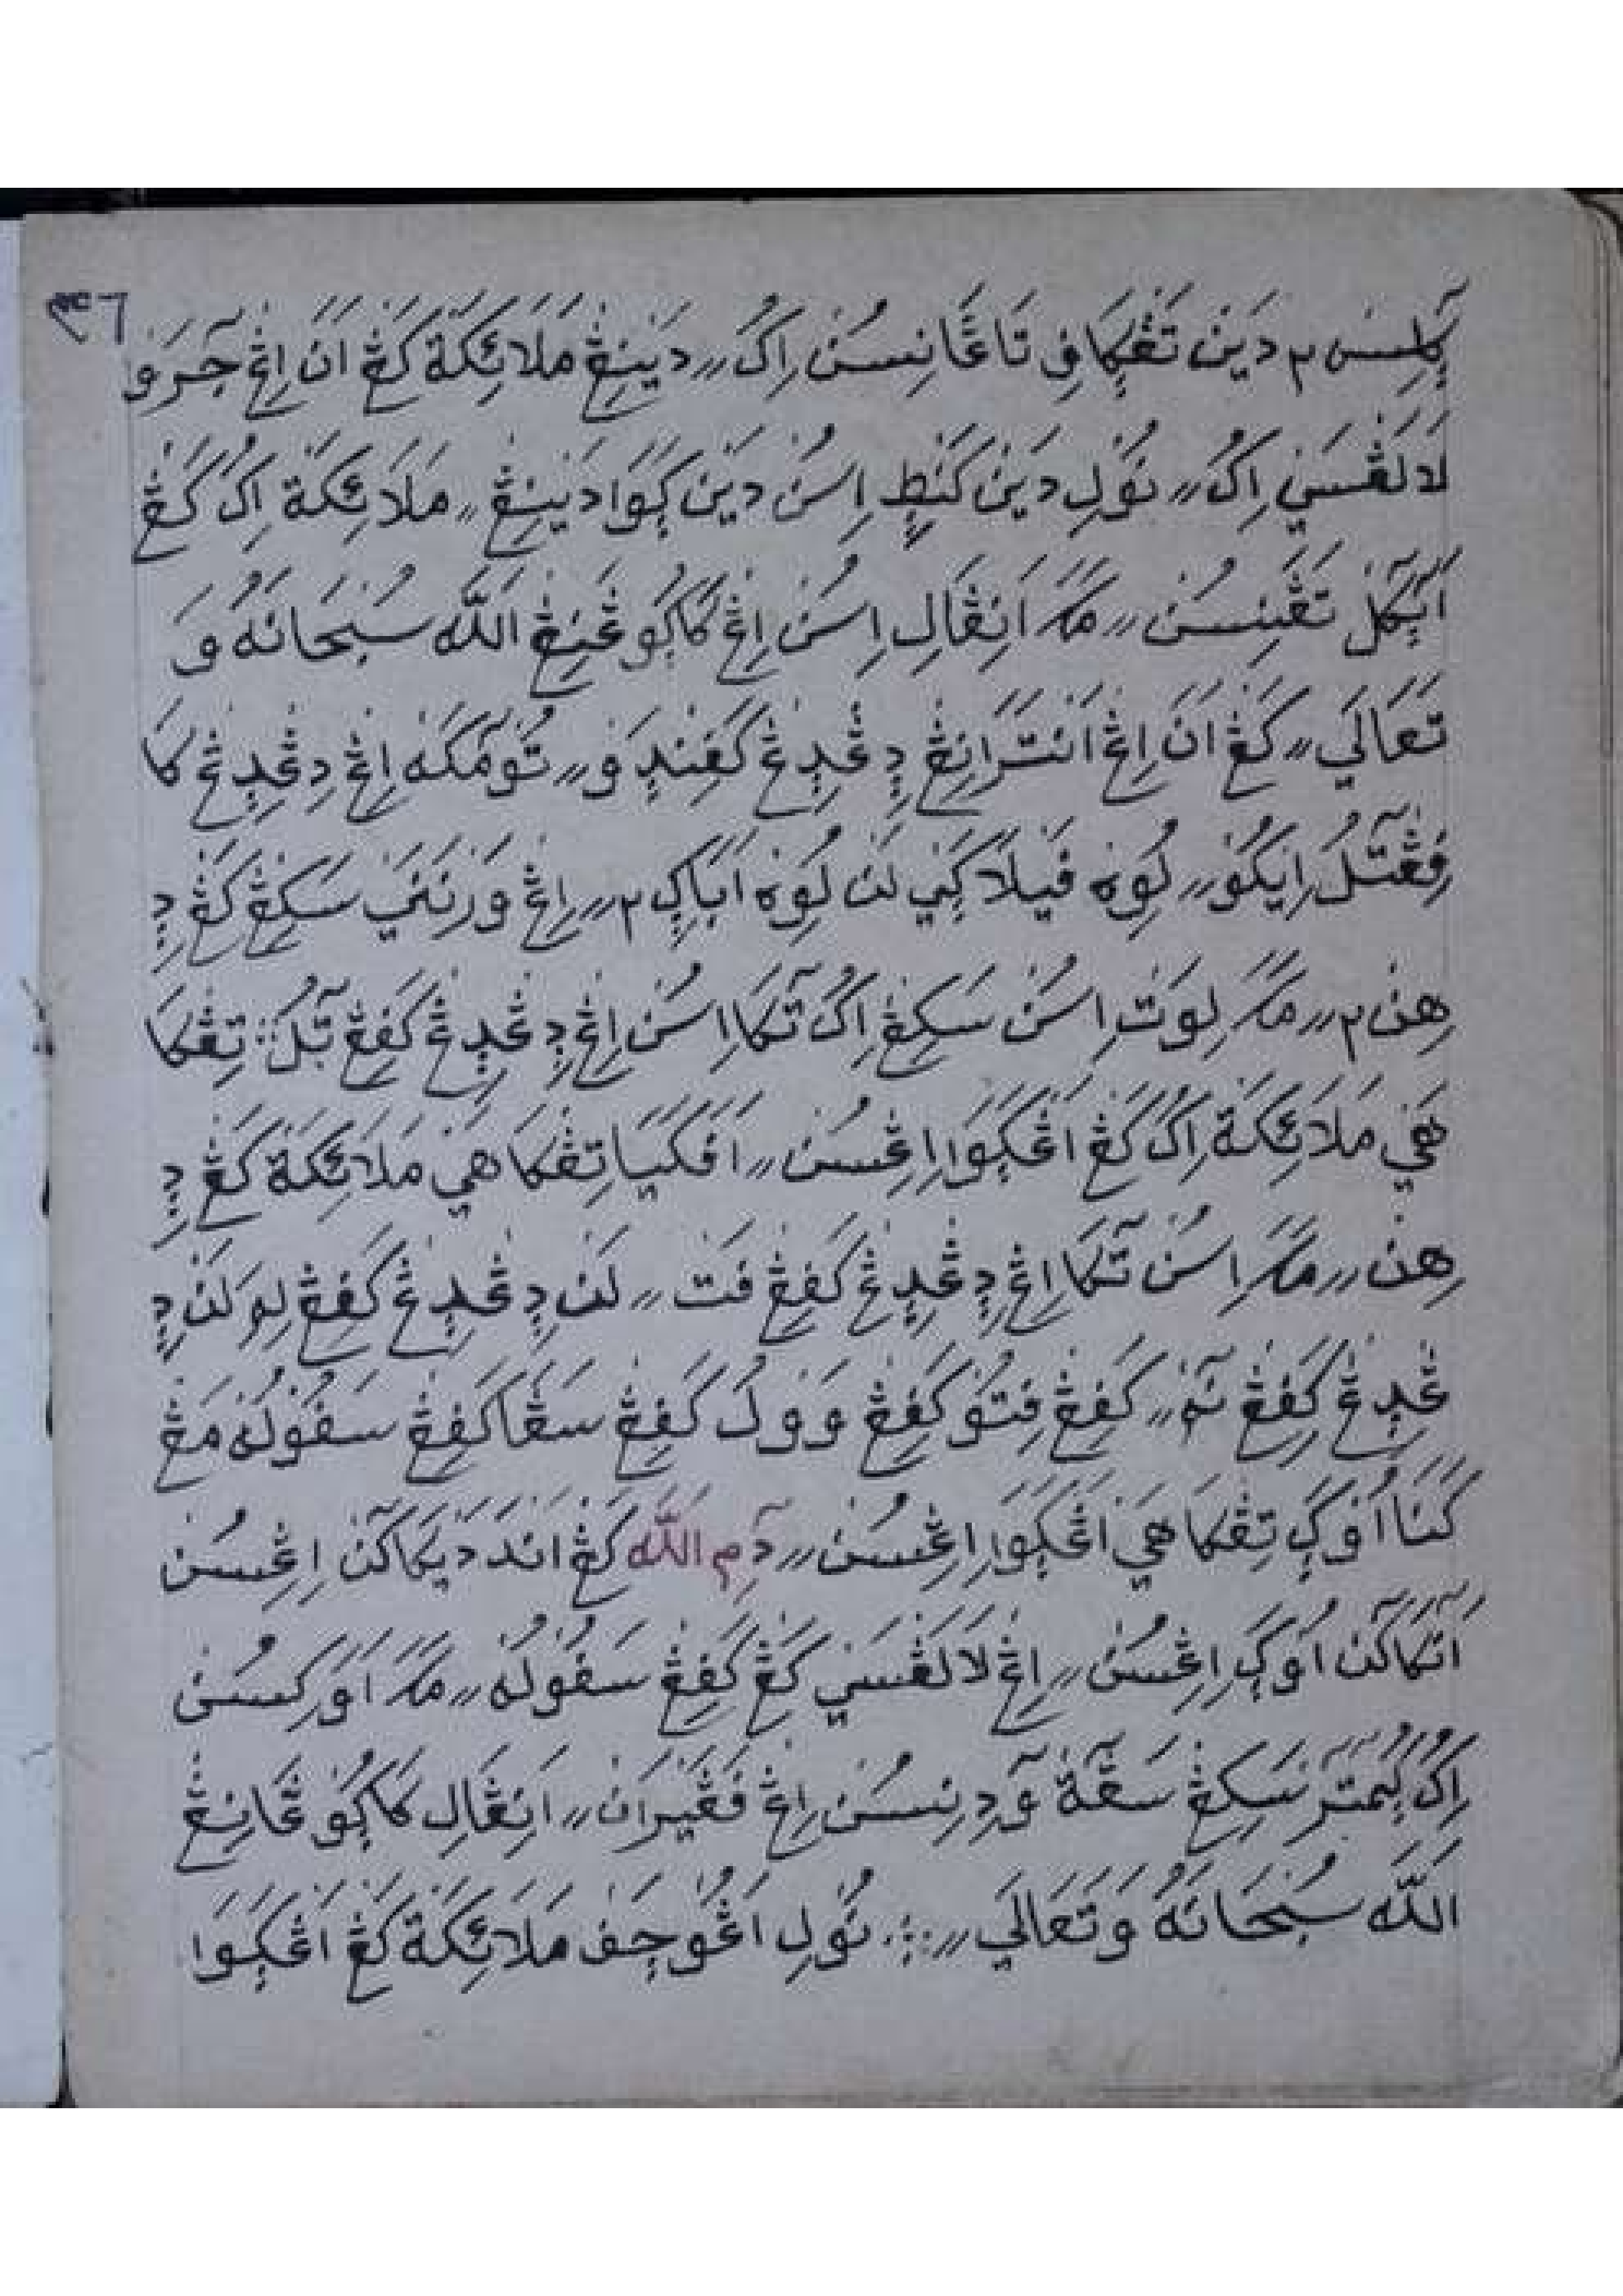 ٣٤٦
كٓلِسن ٢ دَين تَڠْكَافِ تَاڠَانِسُنْ اِكُ ٫٫ دَينِڠْ مَلَائِكَةْ كَڠْ اَنَ اِڠْ جٓرَو
لَالَڠْسَي اِكُ ٫٫ نُوْلِ دَينْ كَنْطٍ اِسُنْ دَينْ كٜوَا دَينِڠْ ٫٫ مَلَائِكَةْ اِكُ كَڠْ
تَڠَنِسُنْ ٫٫ مَڮَ اَنِڠَالِ اِسُنْ اِڠْ كَاكُوڠَنِڠْ اللّٰه سُبْحَانَهُ وَ
تَعَالَي ٫٫ كَڠْ اَنَ اِڠْ اَنْتَرَانِڠْ دِڠْدِڠْ كَفِنْدٍ وَ ٫٫ تُوْمٓكَهْ اِڠْ دِڠْدِڠْ كَا
فِڠْتٓلُ اِيكُوْ ٫٫ لُوِهْ لَنْ لُوِهْ اَبَاكِ ٢ ٫٫ اِڠْ وَرْنَنَي سَكِڠْ كَڠْ دِ
هِنْ ٢ ٫٫ مَڮَ لِوَتْ اِسُنْ سَكِڠْ اِكُ تٓكَا اِسُنْ اِڠْ دِڠْدِڠْ كَفِڠْ تٓلُ ؞ تِڠْكَا
هَي مَلَائِكَةْ اِكُ كَڠْ اَڠْكَوَا اِڠْسُنْ ٫٫ اَڤَكَيَا تِڠْكَاهَي مَلَائِكَةْ كَڠْ دِ
هِنْ ٫٫ مَڮَ اِسُنْ تٓكَا اِڠْ دِڠْدِڠْ كَفِڠْ فَتْ ٫٫ لَنْ دِڠْدِڠْ كَفِڠْ لِمَ لَنْ دِ
ڠْدِڠْ كَفِڠْ نٓمْ ٫٫ كَفِڠْ فِتُوْ كَفِڠْ وَوَلُ كَفِڠْ سَڠَا كَفِڠْ سَفُوْلُهْ مَڠْ
كَنَا اُوْكِ تِڠْكَاهَي اَڠْكَوَا اِڠْسُنْ ٫٫ دٓمِ اللّٰه كَڠْ اَنْدَدَيكَاكٓنْ اِڠْسُنْ
اَنٓكَاكٓنْ اُوْكِ اِڠْسُنْ ٫٫ اِڠْ لَالَڠْسَي كَڠْ كَفِڠْ سَفُوْلُهْ ٫٫ مَڮَ اَوَكِسُنْ
اِكُ كُمٓتَرْ سَكِڠْ سَڠٓةْ وٓدِنِسُنْ اِڠْ فَڠَيرَانْ ٫٫ اَنِڠَالِ كَاكُوڠَانِڠْ
اللّٰه سُبْحَانَهُ وَتَعَالَي ٫٫ ؞ نُوْلِ اَڠُوْچَفْ مَلَائِكَةْ كَڠْ اَڠْكَوَا